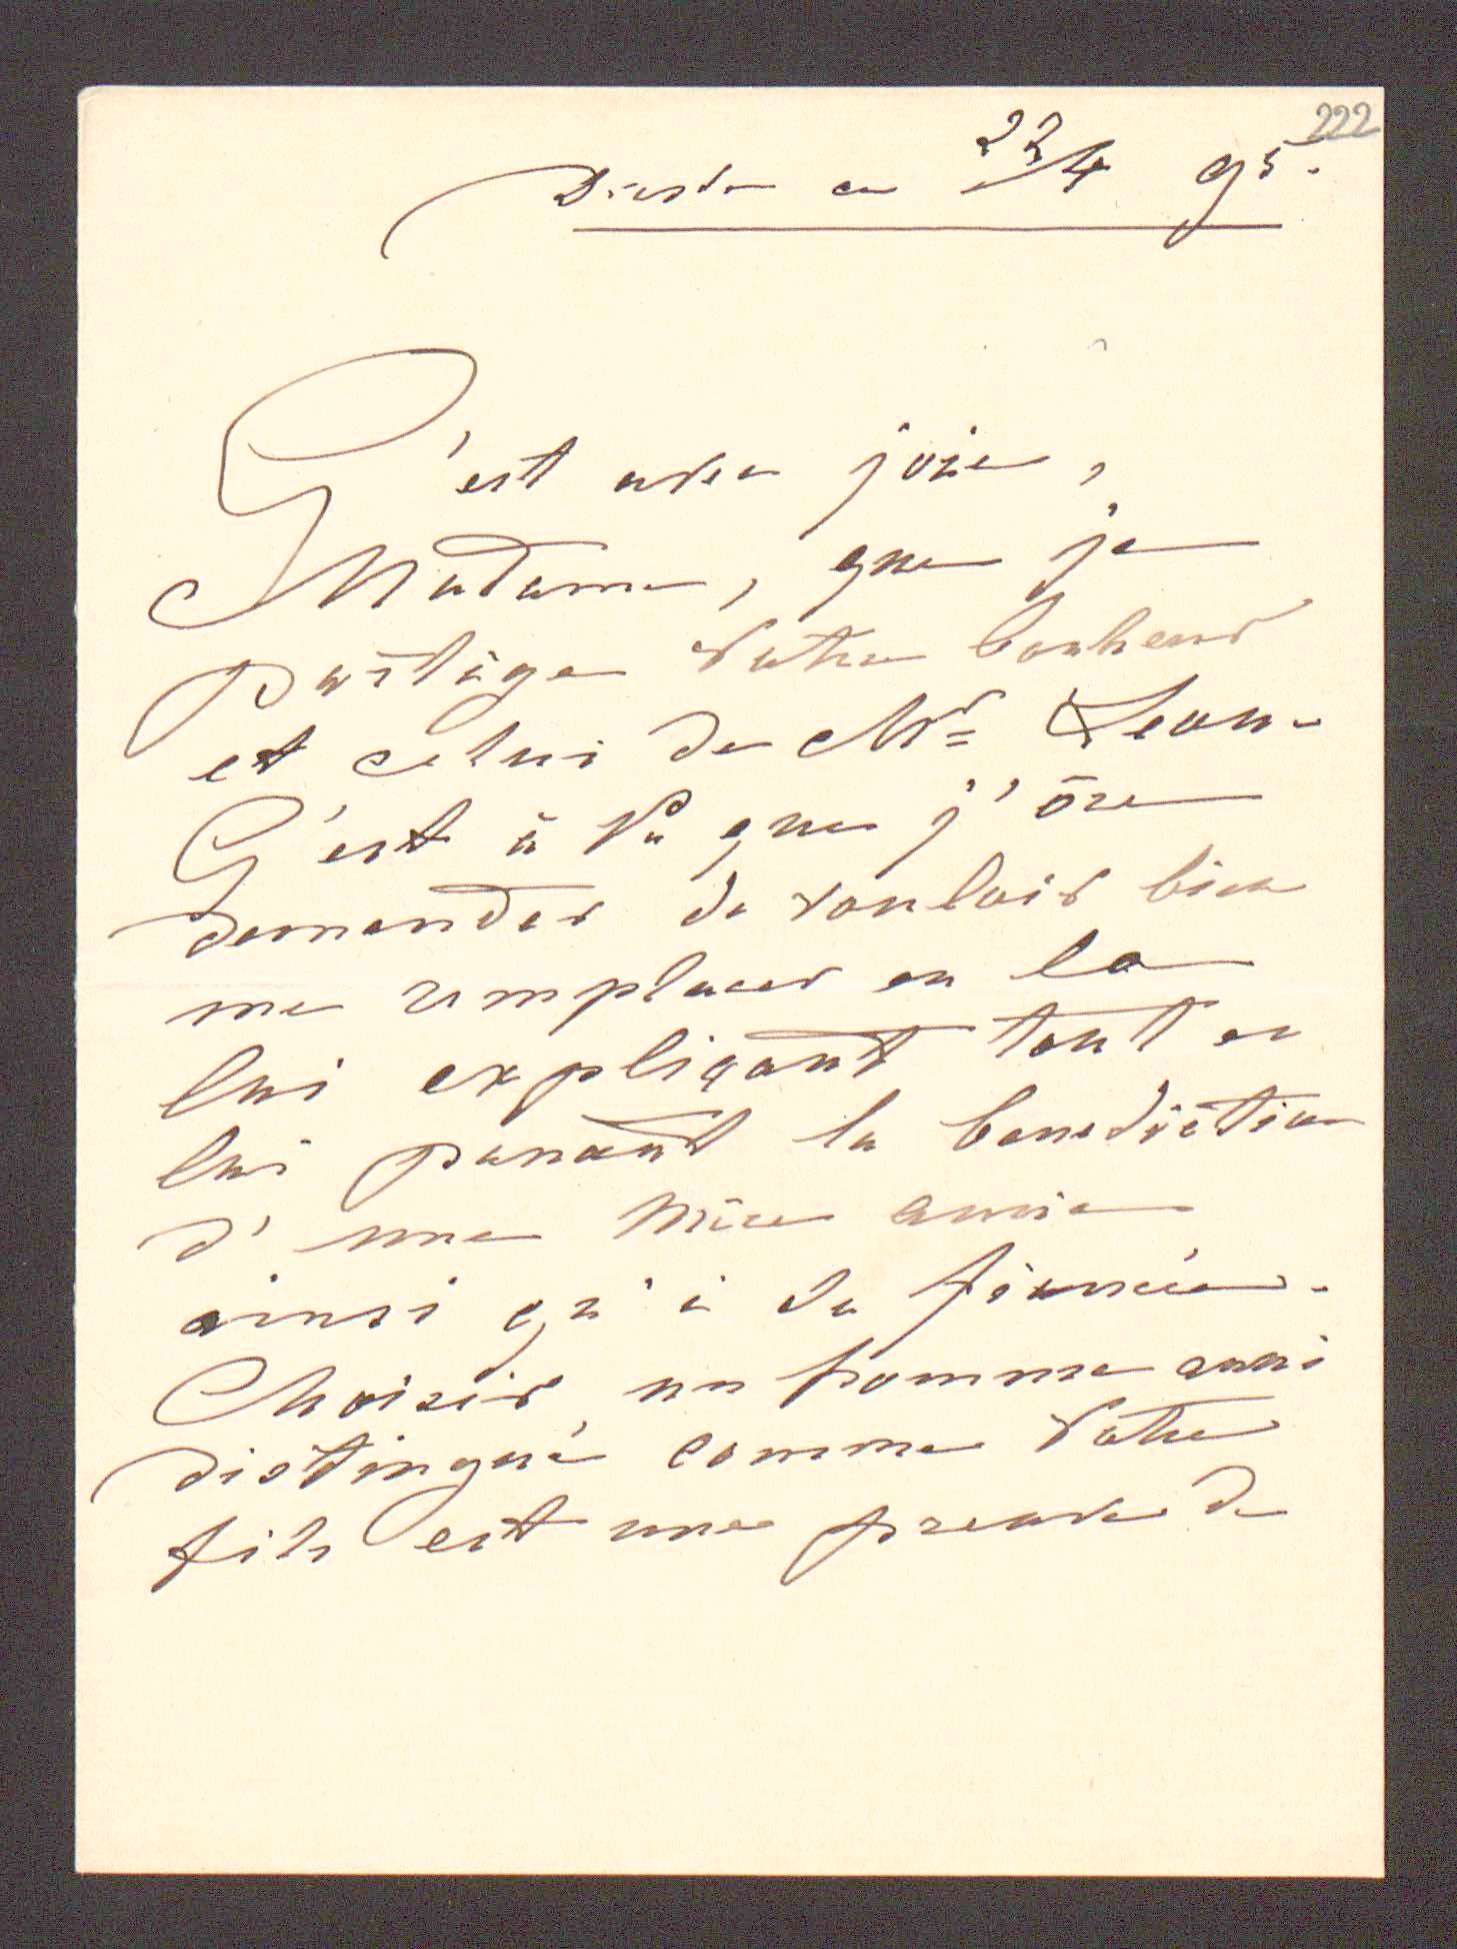 222
Dresde ce 22/4 95.
C'est avec joie,
Madame, que je
partage Votre bonheur
et celui de Mr Leon.
C'est à Vs que j'ôse
demander de vouloir bien
me remplacer en le
lui expliquant tout en
lui la benediction
d'une Mère amie
ainsi qu'à sa fiancée.
Choisir, un homme aussi
distingué comme Votre
fils est une preuve de